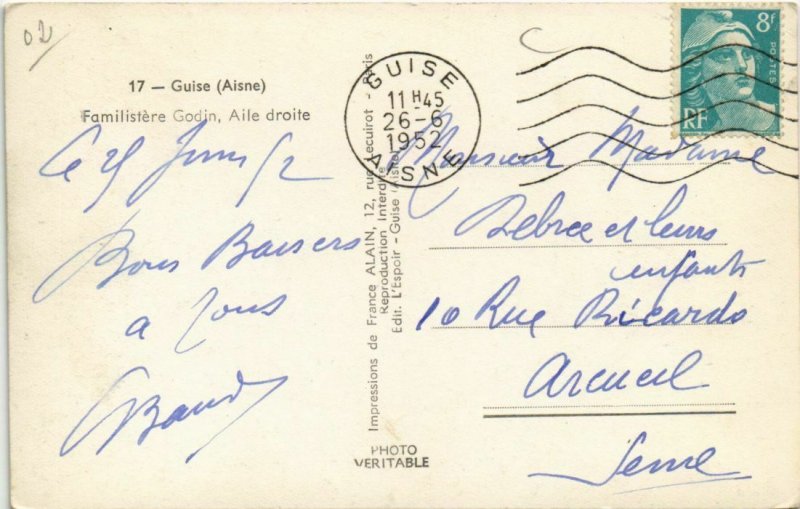 02
17 — Guise (Aisne)
Familistère Godin, Aile droite
Ce 25 Juin 52
Bons Baisers
a Tous
Impressions de France ALAIN, 12, rue Lecuirot - Paris
Reproduction Interdite
Edit. L'Espoir - Guise (Aisne)
PHOTO
VERITABLE
GUISE
11 H 45
26-6
1952
AISNE
8f
POSTES
RF
Monsieur Madame
Debree et leurs
enfants
10 Rue Ricardo
Arcueil
Seine